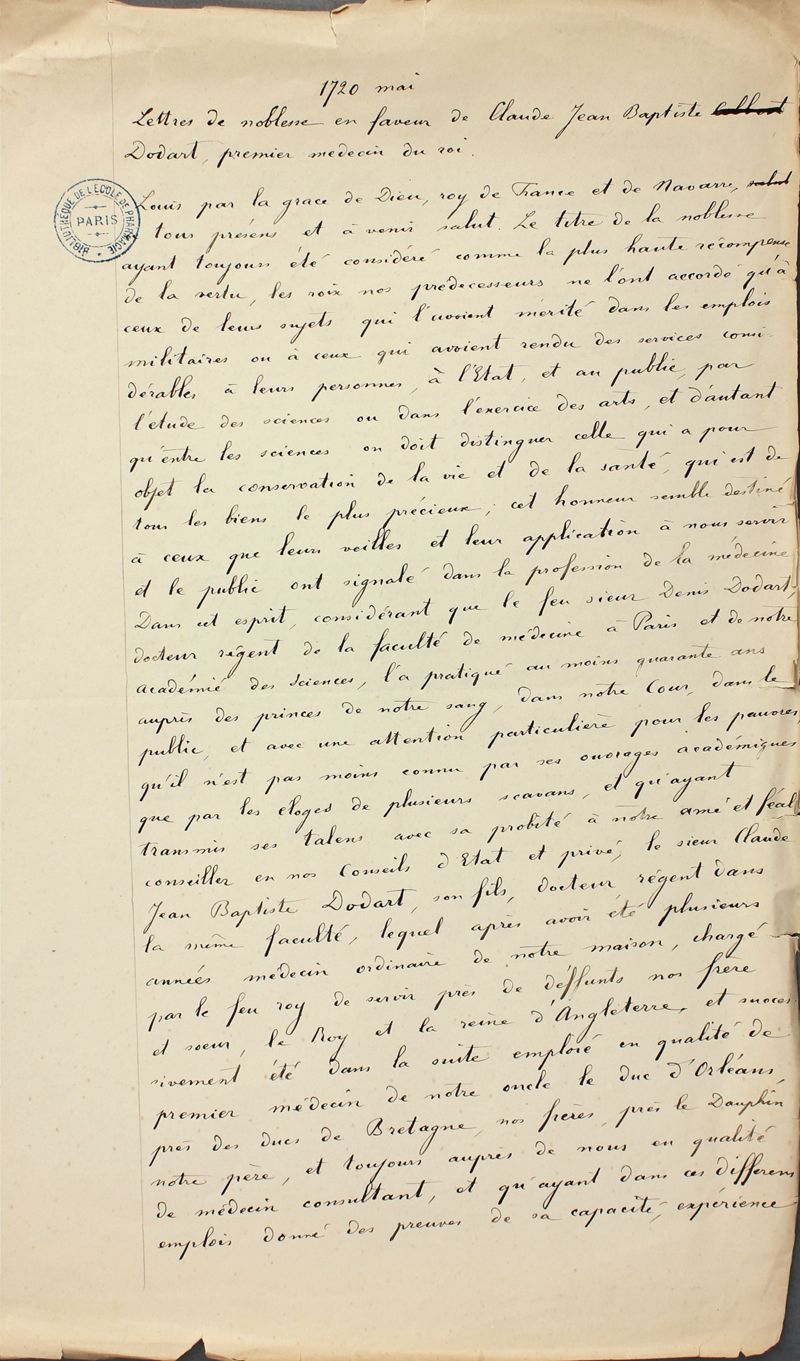 1720 mai
Lettres de noblesse en faveur de Claude Jean Baptiste Colbert
Dodart, premier medecin du roi.
BIBLIOTHÈQUE DE L'ÉCOLE DE PHARMACIE
PARIS
Louis par la grace de Dieu, roy de France et de Navarre, salut
tous présens et à venir salut. Le titre de la noblesse
ayant toujours été considéré comme la plus haute récompense
de la vertu, les roix nos prédecesseurs ne l'ont accordé qu'à
ceux de leurs sujets qui l'avoient mérité dans les emplois
militaires ou à ceux qui avoient rendu des services consi-
dérables à leurs personnes, à l'Etat, et au public, par
l'étude des sciences ou dans l'exercice des arts, et d'autant
qu'entre les sciences on doit distinguer celle qui a pour
objet la conservation de la vie et de la santé, qui est de
tous les biens le plus précieux; cet honneur semble destiné
à ceux que leurs veilles et leur application à nous servir
et le public ont signalé dans la profession de la médecine
Dans cet esprit, considérant que le feu sieur Denis Dodart,
docteur régent de la faculté de médecine à Paris et de notre
académié des sciences, l'a pratiqué au moins quarante ans
auprès des princes de notre sang, dans notre Cour, dans le
public, et avec une attention particulière pour les pauvres,
qu'il n'est pas moins connu par ses ouvrages académiques
que par les eloges de plusieurs scavans, et qu'ayant
transmis ses talens avec sa probité à notre amé et féal
conseiller en nos Conseils d'Etat et privé, le sieur Claude
Jean Baptiste Dodart, son fils, docteur régent dans
la même faculté, lequel après avoir été plusieurs
années médecin ordinaire de notre maison, chargé
par le feu roy de servir près de déffunts nos frère
et soeur, le Roy et la reine d'Angleterre, et succes
sivement été dans la suite emploié en qualité de
premier médecin de notre oncle le duc d'Orléans
près des ducs de Bretagne, nos frères, près le Dauphin
notre père, et toujours auprès de nous en qualité
de médecin consultant, et qu'ayant dans ces differens
emplois donné des preuves de sa capacité, expérience